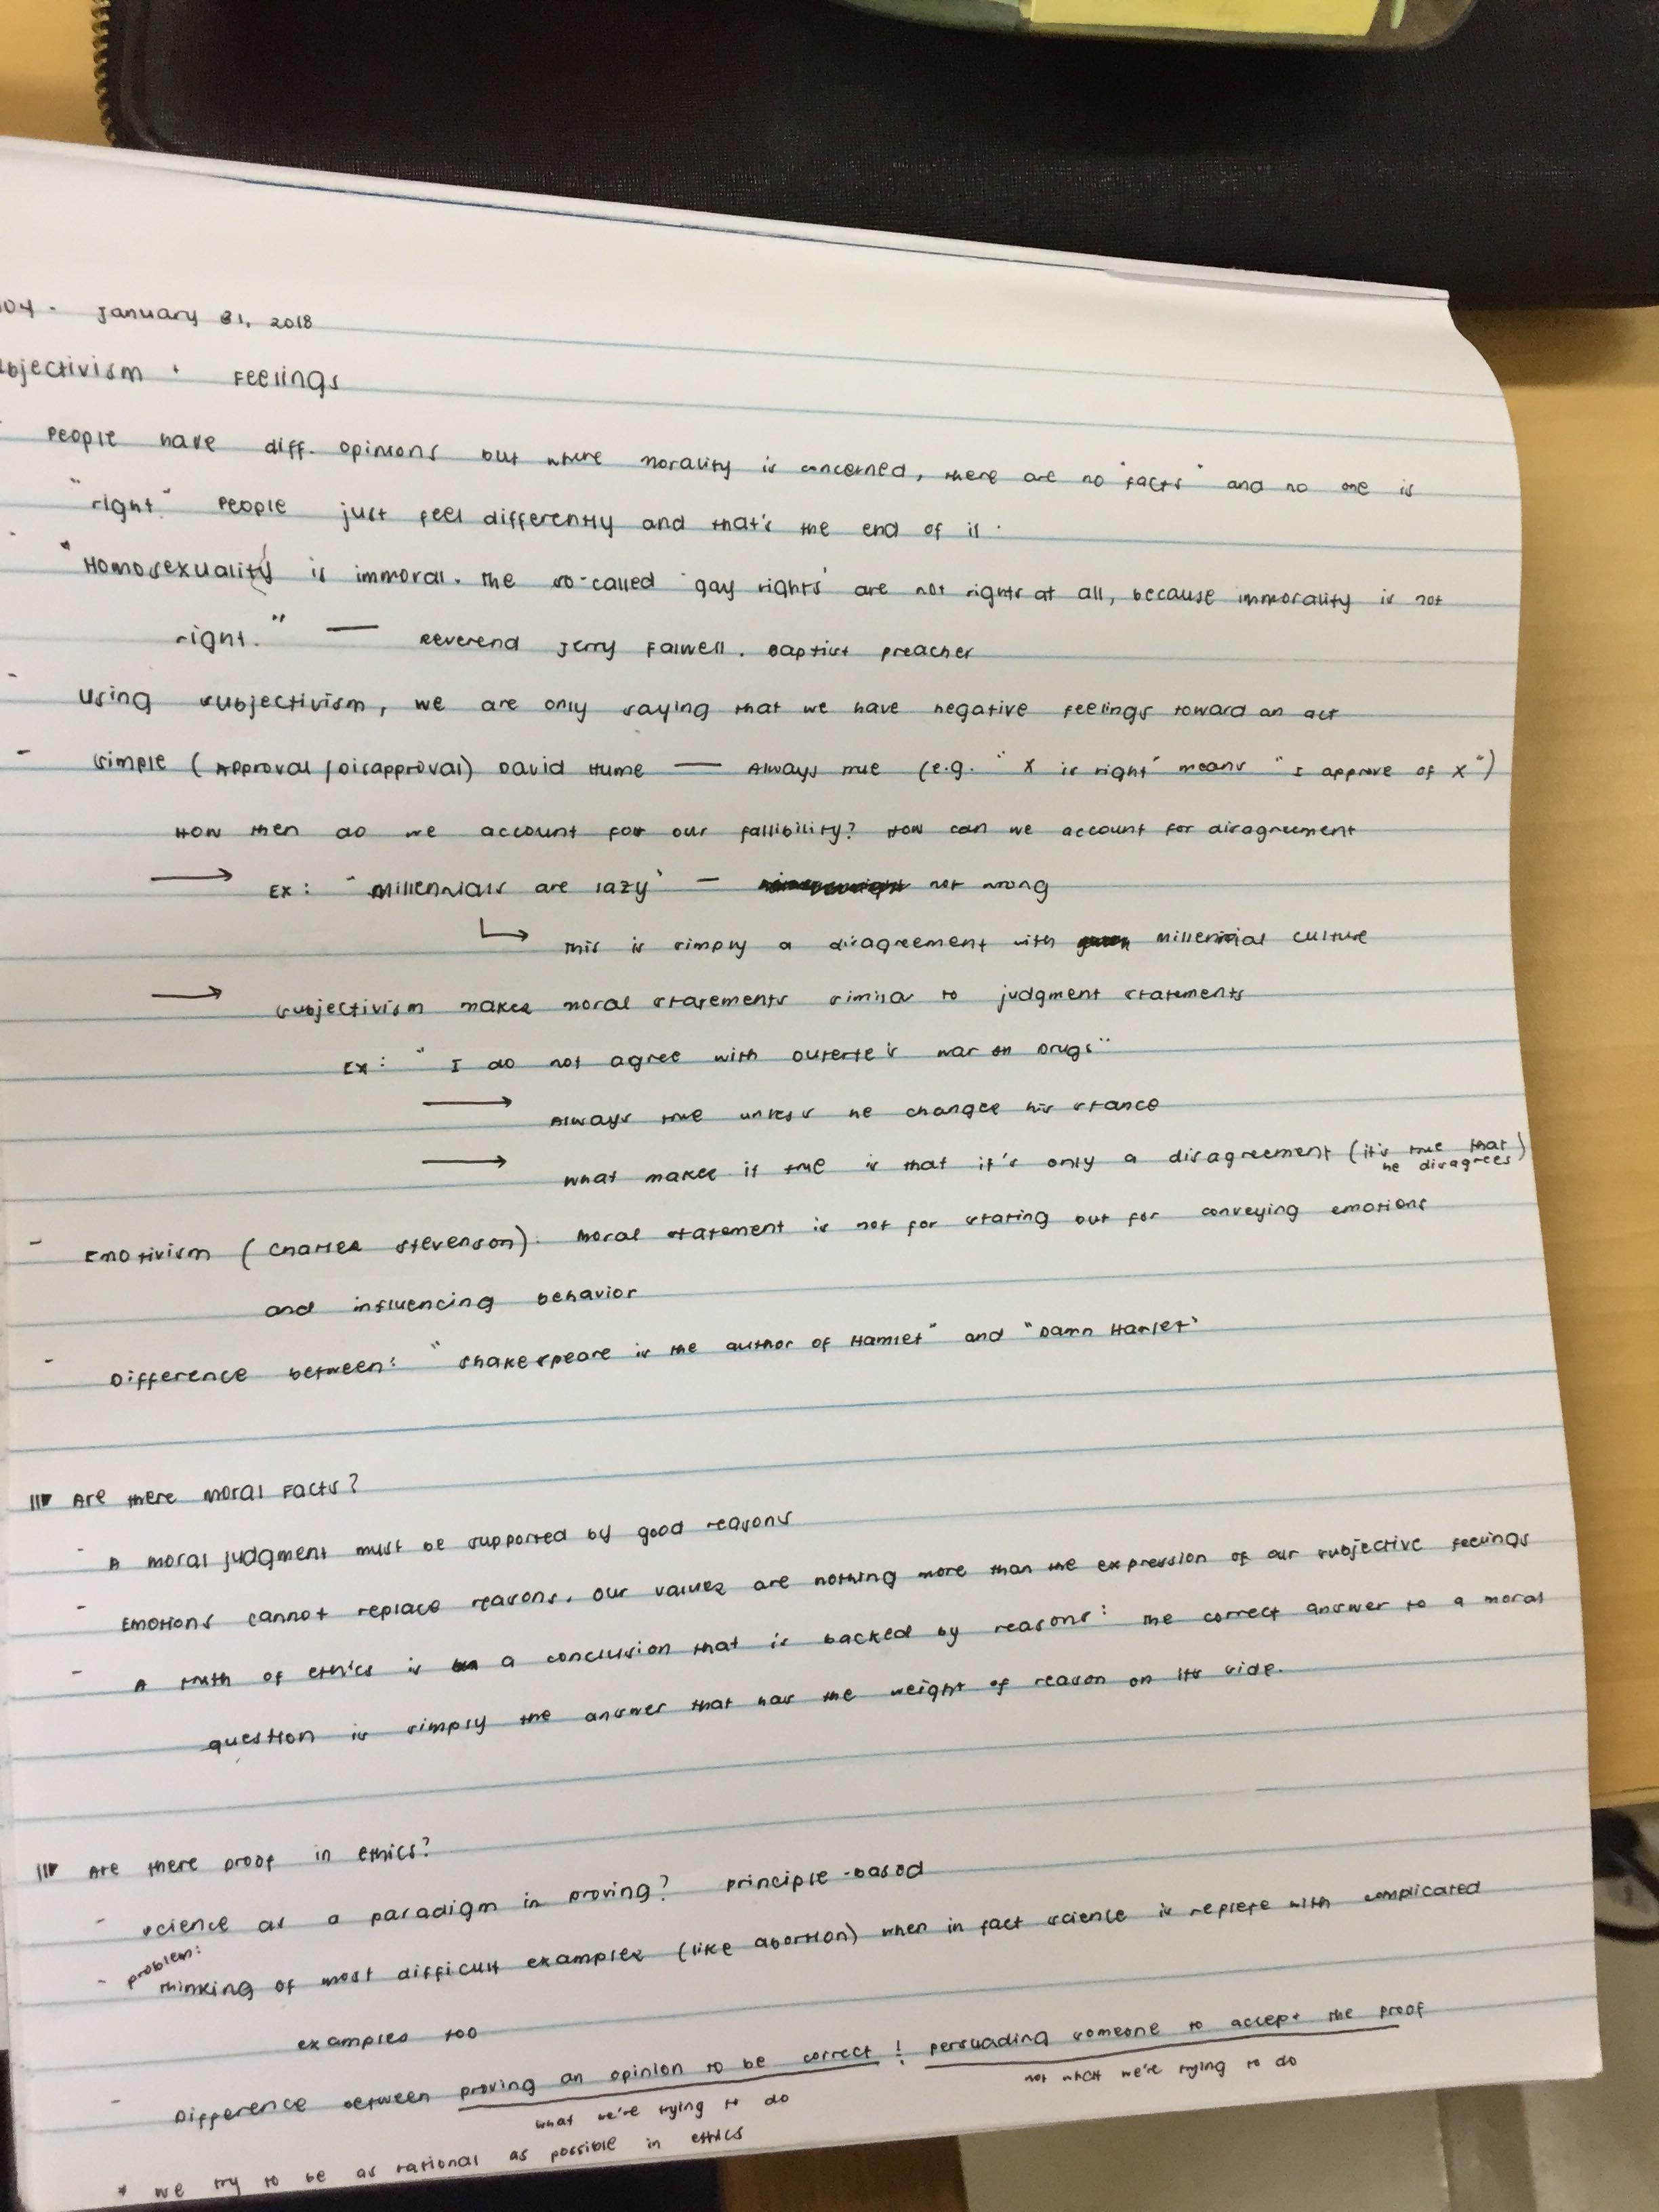 04 - January 31, 2018
bjectivism + Feelings
- People have diff. opinions but where morality is concerned, there are no "facts" and no one is
"right." People just feel differently and that's the end of it.
- "Homosexuality is immoral. The so-called 'gay rights' are not rights at all, because immorality is not
right." — Reverend Jerry Falwell, Baptist preacher
- Using subjectivism, we are only saying that we have negative feelings toward an act
- Simple (Approval / Disapproval) David Hume — Always true (e.g. "X is right" means "I approve of X")
How then do we account for our fallibility? How can we account for disagreement
→ Ex: "Millennials are lazy" — not wrong
↳ This is simply a disagreement with millennial culture
→ Subjectivism makes moral statements similar to judgment statements
Ex: "I do not agree with Duterte's war on drugs"
→ Always true unless he changes his stance
→ What makes it true is that it's only a disagreement (it's true that he disagrees)
- Emotivism (Charles Stevenson). Moral statement is not for stating but for conveying emotions
and influencing behavior
- Difference between: "Shakespeare is the author of Hamlet" and "Damn Hamlet"
Are there Moral Facts?
- A moral judgment must be supported by good reasons
- Emotions cannot replace reasons. Our values are nothing more than the expression of our subjective feelings
- A truth of ethics is a conclusion that is backed by reasons: the correct answer to a moral
question is simply the answer that has the weight of reason on its side.
Are there proof in ethics?
- Science as a paradigm in proving? Principle-based
- problem: Thinking of most difficult examples (like abortion) when in fact science is replete with complicated
examples too
- Difference between proving an opinion to be correct ! persuading someone to accept the proof
what we're trying to do not what we're trying to do
* We try to be as rational as possible in ethics